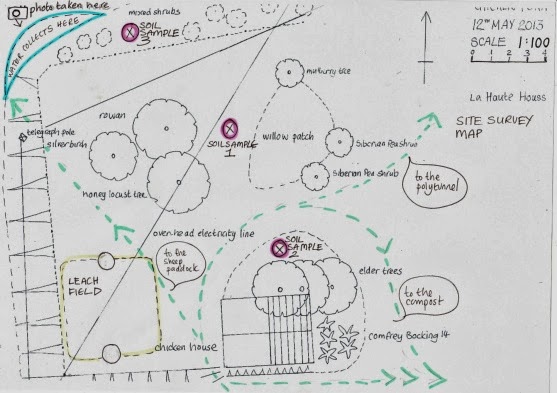 photo taken here
WATER COLLECTS HERE
mixed shrubs
SOIL
SAMPLE
3
12TH MAY 2013
SCALE 1:100
0 1 2 3 4
La Haute Houss
SITE SURVEY
MAP
mulberry tree
rowan
telegraph pole
silver birch
SOIL SAMPLE
1
willow patch
Siberian Pea shrub
Siberian Pea shrub
honey locust tree
to the
polytunnel
overhead electricity line
to the
sheep
paddock
SOIL
SAMPLE
2
LEACH
FIELD
elder trees
to the
compost
chicken house
Comfrey Bocking 14